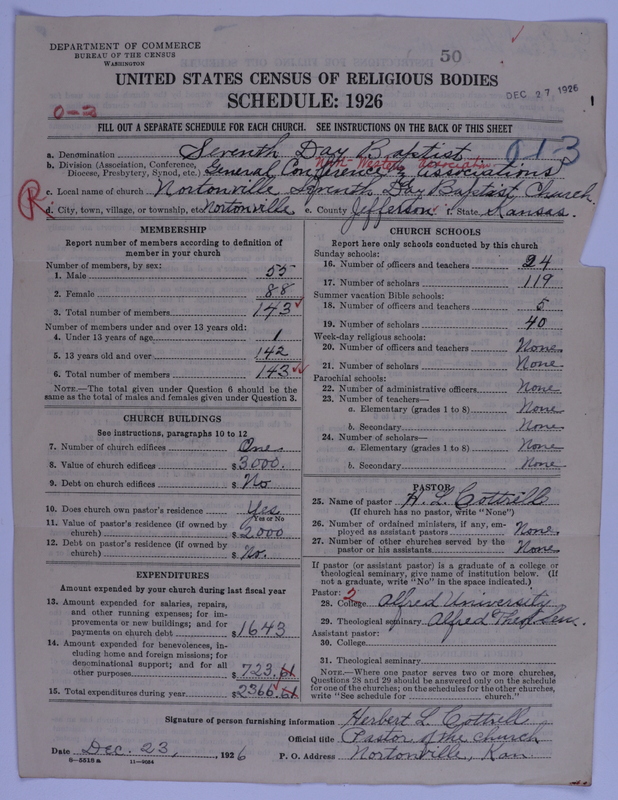 DEPARTMENT OF COMMERCE
BUREAU OF THE CENSUS
WASHINGTON
50
UNITED STATES CENSUS OF RELIGIOUS BODIES
SCHEDULE: 1926
DEC 27 1926
1
0-2
FILL OUT A SEPARATE SCHEDULE FOR EACH CHURCH. SEE INSTRUCTIONS ON THE BACK OF THIS SHEET
a. Denomination Seventh Day Baptist
013
North Western Association
b. Division (Association, Conference, Diocese, Presbytery, Synod, etc.) General Conference & Associations
c. Local name of church Nortonville Seventh Day Baptist Church
R
d. City, town, village, or township, etc. Nortonville e. County Jefferson f. State Kansas.
MEMBERSHIP
Report number of members according to definition of
member in your church
Number of members, by sex:
1. Male 55
2. Female 88
3. Total number of members 143
Number of members under and over 13 years old:
4. Under 13 years of age 1
5. 13 years old and over 142
6. Total number of members 143
NOTE.—The total given under Question 6 should be the
same as the total of males and females given under Question 3.
CHURCH BUILDINGS
See instructions, paragraphs 10 to 12
7. Number of church edifices One
8. Value of church edifices $3000.
9. Debt on church edifices $No
10. Does church own pastor's residence Yes
Yes or No
11. Value of pastor's residence (if owned by
church) $2000
12. Debt on pastor's residence (if owned by
church) $No.
EXPENDITURES
Amount expended by your church during last fiscal year
13. Amount expended for salaries, repairs,
and other running expenses; for im-
provements or new buildings; and for
payments on church debt $1643
14. Amount expended for benevolences, in-
cluding home and foreign missions; for
denominational support; and for all
other purposes $723.61
15. Total expenditures during year $2366.61
CHURCH SCHOOLS
Report here only schools conducted by this church
Sunday schools:
16. Number of officers and teachers 24
17. Number of scholars 119
Summer vacation Bible schools:
18. Number of officers and teachers 5
19. Number of scholars 40
Week-day religious schools:
20. Number of officers and teachers None
21. Number of scholars None
Parochial schools:
22. Number of administrative officers None
23. Number of teachers—
a. Elementary (grades 1 to 8) None
b. Secondary None
24. Number of scholars—
a. Elementary (grades 1 to 8) None
b. Secondary None
PASTOR
25. Name of pastor H. L. Cottrell
(If church has no pastor, write "None")
26. Number of ordained ministers, if any, em-
ployed as assistant pastors None
27. Number of other churches served by the
pastor or his assistants None
If pastor (or assistant pastor) is a graduate of a college or
theological seminary, give name of institution below. (If
not a graduate, write "No" in the space indicated.)
Pastor: 2
28. College Alfred University
29. Theological seminary Alfred Theo. Sem.
Assistant pastor:
30. College
31. Theological seminary
NOTE.—Where one pastor serves two or more churches,
Questions 28 and 29 should be answered only on the schedule
for one of the churches; on the schedules for the other churches,
write "See schedule for church."
Signature of person furnishing information Herbert L. Cottrell
Official title Pastor of the church
Date Dec. 23, 1926 P. O. Address Nortonville, Kan
8—5518a 11—9024